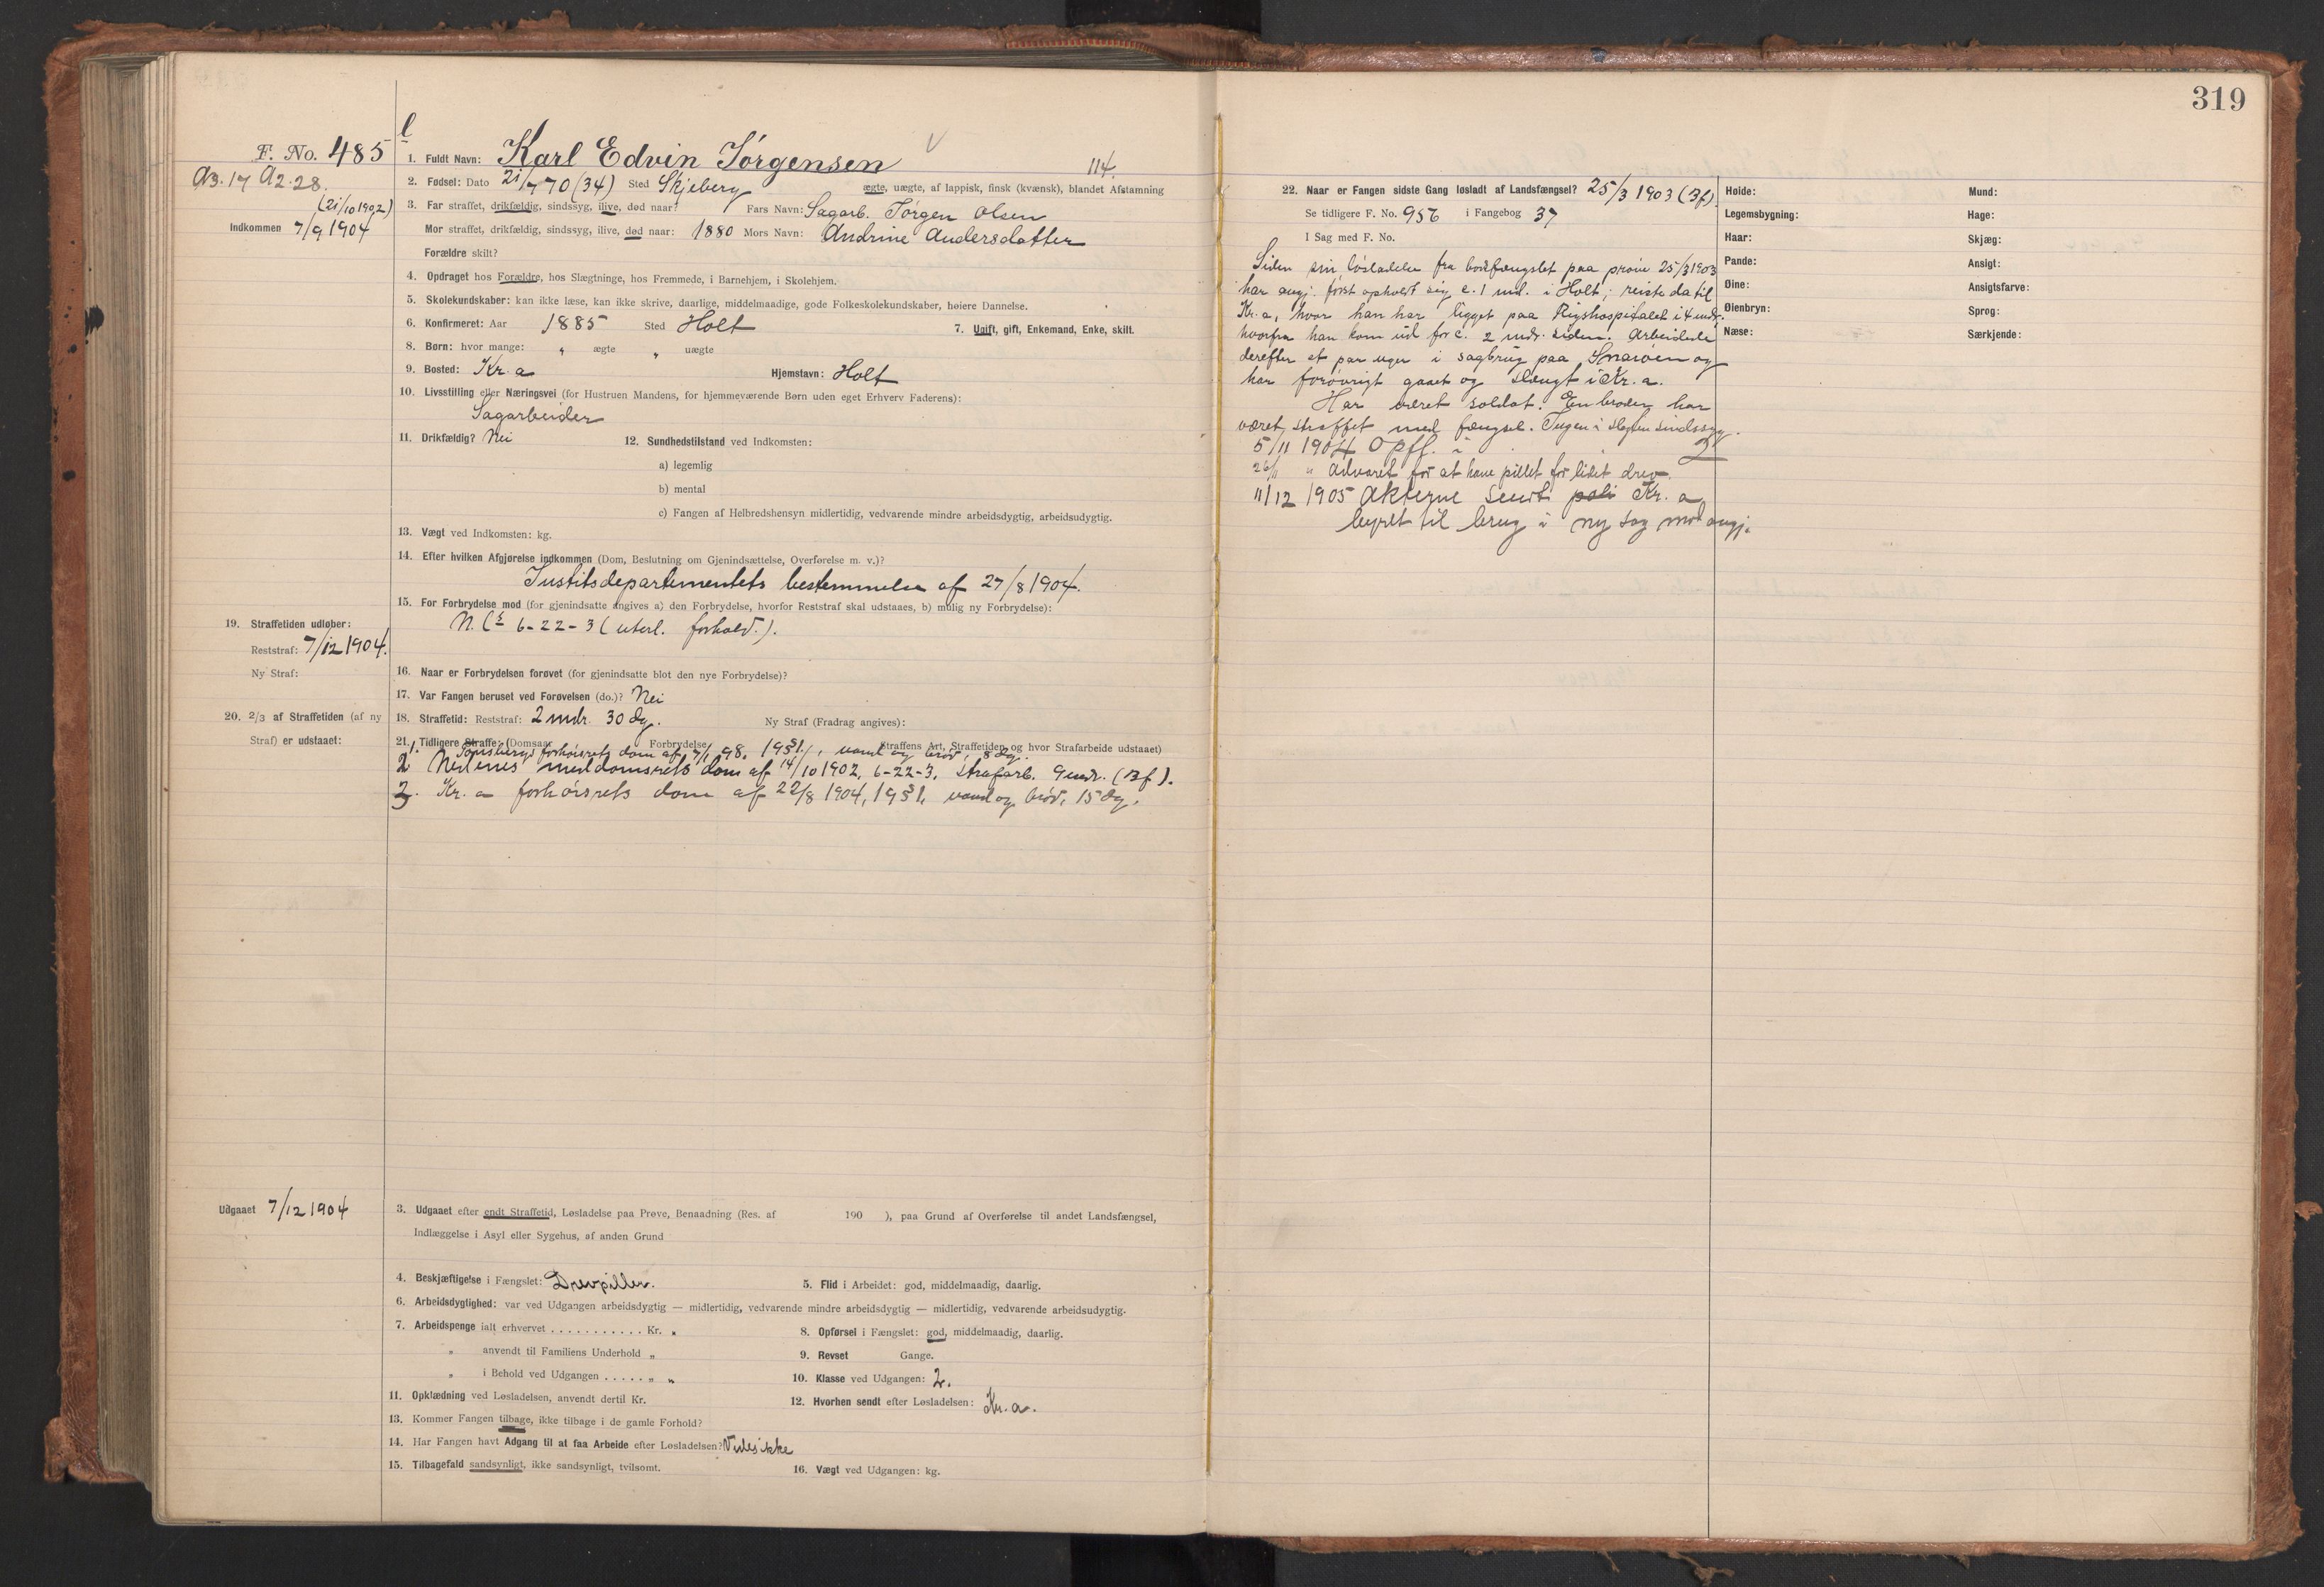 319
l
F. No. 485
A3.17 A2.28.
(21/10 1902)
Indkommen 7/9 1904
1. Fuldt Navn: Karl Edvin Jørgensen
114.
2. Fødsel: Dato 21/7 70 (34) Sted Skjeberg ægte, uægte, af lappisk, finsk (kvænsk), blandet Afstamning
3. Far straffet, drikfældig, sindssyg, ilive, død naar? Fars Navn: Sagarb. Jørgen Olsen
Mor straffet, drikfældig, sindssyg, ilive, død naar: 1880 Mors Navn: Andrine Andersdatter
Forældre skilt?
4. Opdraget hos Forældre, hos Slægtninge, hos Fremmede, i Barnehjem, i Skolehjem.
5. Skolekundskaber: kan ikke læse, kan ikke skrive, daarlige, middelmaadige, gode Folkeskolekundskaber, høiere Dannelse.
6. Konfirmeret: Aar 1885 Sted Holt 7. Ugift, gift, Enkemand, Enke, skilt.
8. Børn: hvor mange: „ ægte „ uægte
9. Bosted: Kr.a Hjemstavn: Holt
10. Livsstilling eller Næringsvei (for Hustruen Mandens, for hjemmeværende Børn uden eget Erhverv Faderens):
Sagarbeider
11. Drikfældig? Nei 12. Sundhedstilstand ved Indkomsten:
a) legemlig
b) mental
c) Fangen af Helbredshensyn midlertidig, vedvarende mindre arbeidsdygtig, arbeidsudygtig.
13. Vægt ved Indkomsten: kg.
14. Efter hvilken Afgjørelse indkommen (Dom, Beslutning om Gjenindsættelse, Overførelse m. v.)?
Justitsdepartementets bestemmelse af 27/8 1904.
15. For Forbrydelse mod (for gjenindsatte angives a) den Forbrydelse, hvorfor Reststraf skal udstaaes, b) mulig ny Forbrydelse):
6-22-3 (uterl. forhold.).
19. Straffetiden udløber:
Reststraf: 7/12 1904.
Ny Straf:
16. Naar er Forbrydelsen forøvet (for gjenindsatte blot den nye Forbrydelse)?
17. Var Fangen beruset ved Forøvelsen (do.)? Nei
20. 2/3 af Straffetiden (af ny
Straf) er udstaaet:
18. Straffetid: Reststraf: 2 mdr. 30 dg. Ny Straf (Fradrag angives):
21. Tidligere Straffe: (Domsaar Forbrydelse Straffens Art, Straffetiden og hvor Strafarbeide udstaaet)
1. Tønsbergs forhørsrets dom af 7/1 98, 19 § 1, vand og brød, 8 dg.
2 Nedenes meddomsrets dom af 14/10 1902, 6-22-3, strafarb. 9 mdr. (Bf).
3. Kr.a forhørsrets dom af 22/8 1904, 19 § 1, vand og brød, 15 dg.
Udgaaet 7/12 1904
3. Udgaaet efter endt Straffetid, Løsladelse paa Prøve, Benaadning (Res. af 190 ), paa Grund af Overførelse til andet Landsfængsel,
Indlæggelse i Asyl eller Sygehus, af anden Grund
4. Beskjæftigelse i Fængslet: Drevpiller. 5. Flid i Arbeidet: god, middelmaadig, daarlig.
6. Arbeidsdygtighed: var ved Udgangen arbeidsdygtig — midlertidig, vedvarende mindre arbeidsdygtig — midlertidig, vedvarende arbeidsudygtig.
7. Arbeidspenge ialt erhvervet ........... Kr. „ 8. Opførsel i Fængslet: god, middelmaadig, daarlig.
„ anvendt til Familiens Underhold „ 9. Revset Gange.
„ i Behold ved Udgangen ..... „ „ 10. Klasse ved Udgangen: 2.
11. Opklædning ved Løsladelsen, anvendt dertil Kr. 12. Hvorhen sendt efter Løsladelsen: Kr.a.
13. Kommer Fangen tilbage, ikke tilbage i de gamle Forhold?
14. Har Fangen havt Adgang til at faa Arbeide efter Løsladelsen? Vides ikke
15. Tilbagefald sandsynligt, ikke sandsynligt, tvilsomt. 16. Vægt ved Udgangen: kg.
22. Naar er Fangen sidste Gang løsladt af Landsfængsel? 25/3 1903 (Bf).
Se tidligere F. No. 956 i Fangebog 37
I Sag med F. No.
Siden sin løsladelse fra bodsfængslet paa prøve 25/3 1903
har angj. først opholdt sig c. 1 md. i Holt; reiste da til
Kr.a, hvor han har ligget paa Rigshospitalet i 4 mdr.
hvorfra han kom ud for c. 2 mdr. siden. Arbeidede
derefter et par uger i sagbrug paa Snarøen og
har forøvrigt gaaet og slængt i Kr.a.
Har været soldat. En broder har
været straffet med fængsel. Ingen i slegten sindssyg.
5/11 1904 Opfl. i 2
26/11 „ Advaret for at have pillet for lidet drev.
11/12 1905 Akterne sendt poli Kr.a
byret til brug i ny sag mod angj.
Høide: Mund:
Legemsbygning: Hage:
Haar: Skjæg:
Pande: Ansigt:
Øine: Ansigtsfarve:
Øienbryn: Sprog:
Næse: Særkjende: